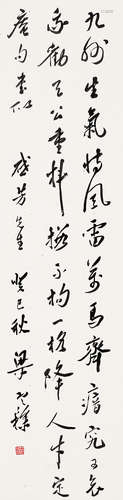 九州生氣恃風雷萬馬齊瘖究可哀
我勸天公重抖擻不拘一格降人才定
庵句書似 芳先生 癸巳秋 梁寒操